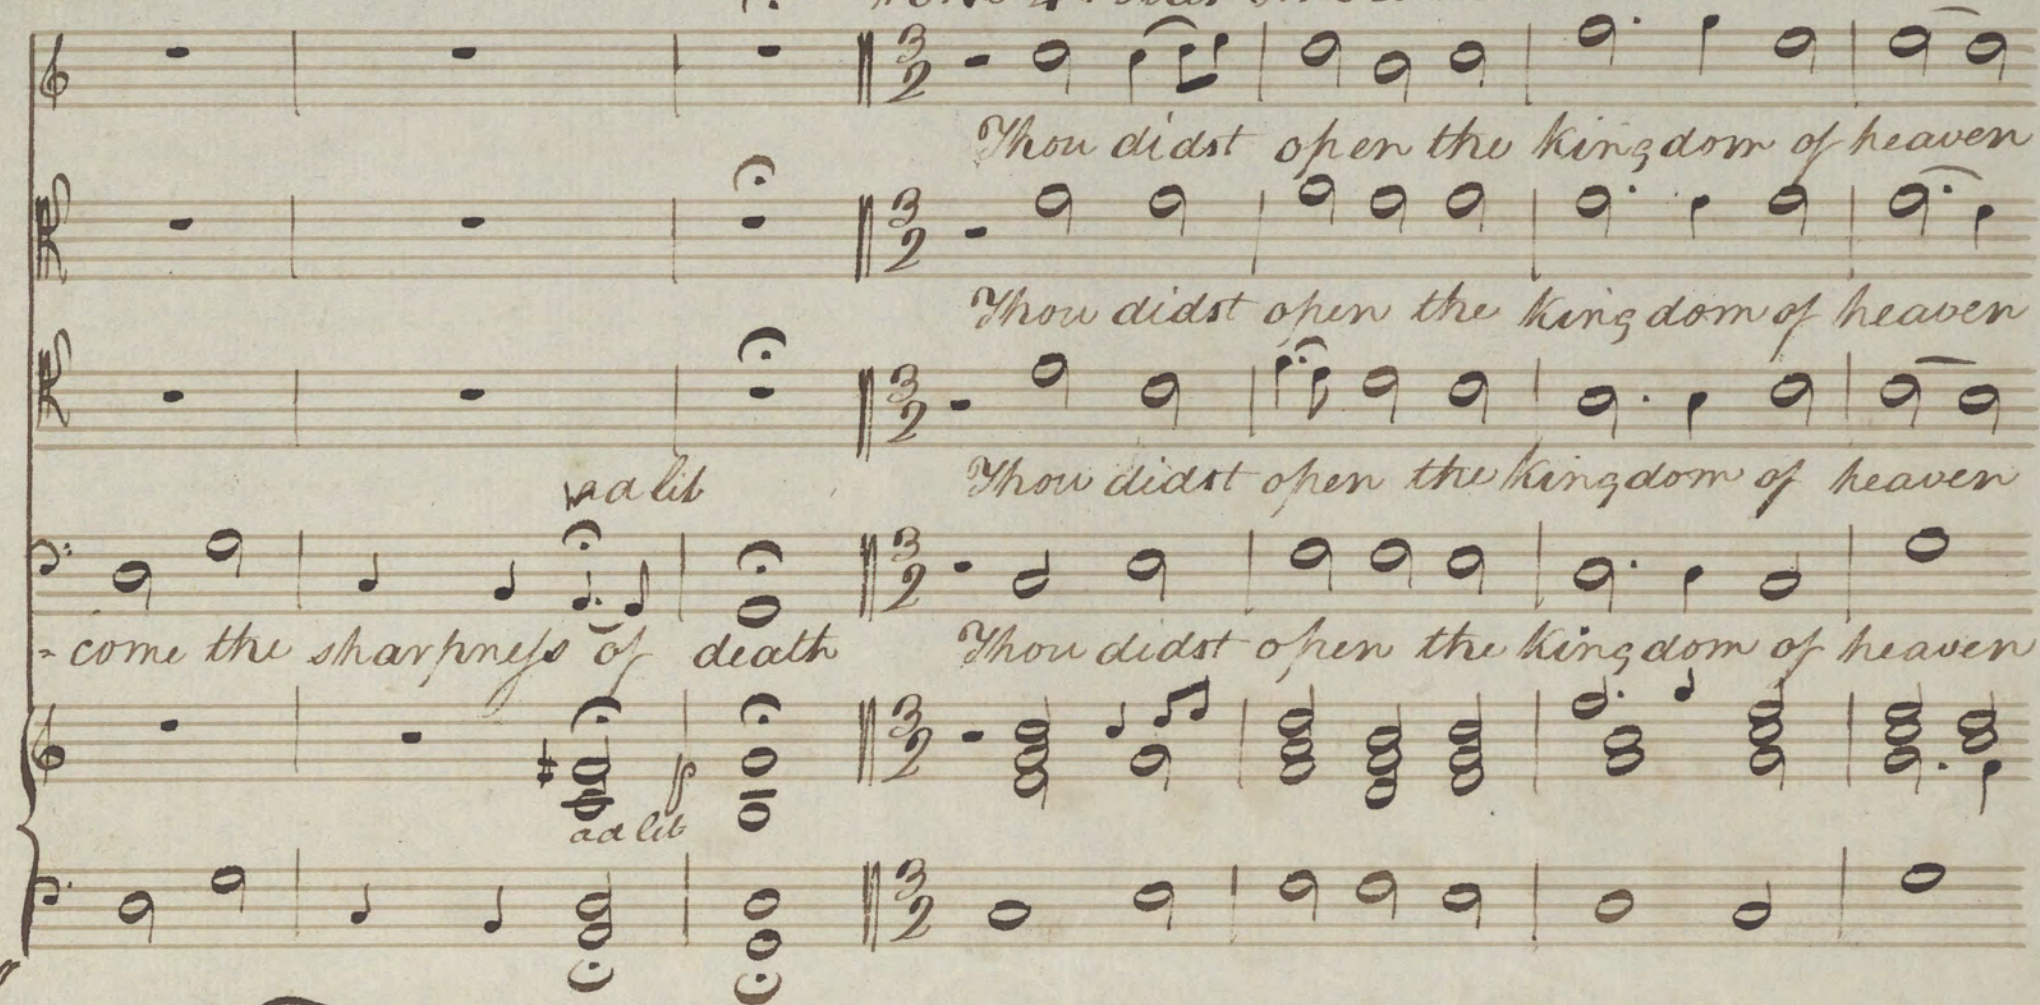 Thou didst open the kingdom of heaven
Thou didst open the kingdom of heaven
ad lib
Thou didst open the kingdom of heaven
=come the sharpneſs of death Thou didst open the kingdom of heaven
p
ad lib